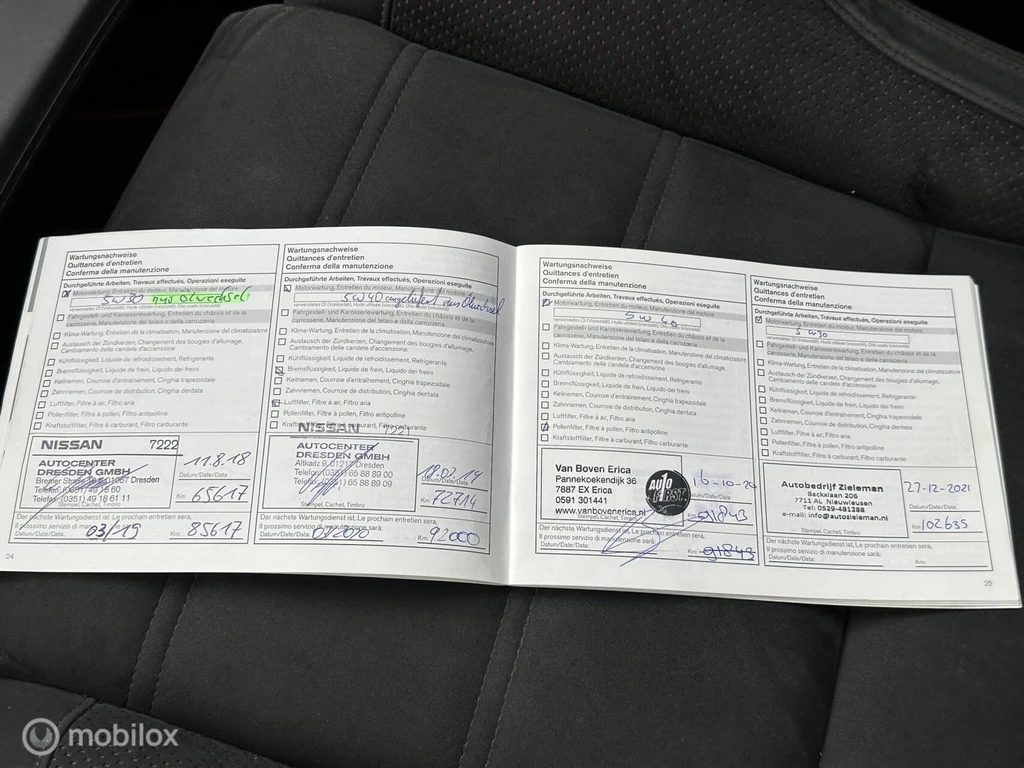 Wartungsnachweise
Quittances d'entretien
Conferma della manutenzione
Durchgeführte Arbeiten, Travaux effectués, Operazioni eseguite
Motorwartung, Entretien du moteur, Manutenzione del motore
5W30 nur Ölwechsel
Verwendetes Öl (Viskosität), Huile utilisée (viscosité), Olio usato (viscosità)
Fahrgestell- und Karosseriewartung, Entretien du châssis et de la
carrosserie, Manutenzione del telaio e della carrozzeria
Klima-Wartung, Entretien de la climatisation, Manutenzione del climatizzatore
Austausch der Zündkerzen, Changement des bougies d'allumage,
Cambiamento delle candele d'accensione
Kühlflüssigkeit, Liquide de refroidissement, Refrigerante
Bremsflüssigkeit, Liquide de frein, Liquido dei freni
Keilriemen, Courroie d'entraînement, Cinghia trapezoidale
Zahnriemen, Courroie de distribution, Cinghia dentata
Luftfilter, Filtre à air, Filtro aria
Pollenfilter, Filtre à pollen, Filtro antipolline
Kraftstofffilter, Filtre à carburant, Filtro carburante
NISSAN 7222
AUTOCENTER
DRESDEN GMBH
01067 Dresden
Telefon (0351) 49 18 60
Telefax (0351) 49 18 61 11
Stempel, Cachet, Timbro
11.8.18
Datum/Date/Data
Km: 65617
Der nächste Wartungsdienst ist, Le prochain entretien sera,
Il prossimo servizio di manutenzione sarà:
Datum/Date/Data: 03/19 Km: 85617
24
Wartungsnachweise
Quittances d'entretien
Conferma della manutenzione
Durchgeführte Arbeiten, Travaux effectués, Operazioni eseguite
Motorwartung, Entretien du moteur, Manutenzione del motore
5W40
Verwendetes Öl (Viskosität), Huile utilisée (viscosité), Olio usato (viscosità)
Fahrgestell- und Karosseriewartung, Entretien du châssis et de la
carrosserie, Manutenzione del telaio e della carrozzeria
Klima-Wartung, Entretien de la climatisation, Manutenzione del climatizzatore
Austausch der Zündkerzen, Changement des bougies d'allumage,
Cambiamento delle candele d'accensione
Kühlflüssigkeit, Liquide de refroidissement, Refrigerante
Bremsflüssigkeit, Liquide de frein, Liquido dei freni
Keilriemen, Courroie d'entraînement, Cinghia trapezoidale
Zahnriemen, Courroie de distribution, Cinghia dentata
Luftfilter, Filtre à air, Filtro aria
Pollenfilter, Filtre à pollen, Filtro antipolline
Kraftstofffilter, Filtre à carburant, Filtro carburante
NISSAN 7221
AUTOCENTER
DRESDEN GMBH
Dresden
Telefon (0351) 65 88 89 00
Telefax (0351) 65 88 89 89
Stempel, Cachet, Timbro
Datum/Date/Data
Km: 72714
Der nächste Wartungsdienst ist, Le prochain entretien sera,
Il prossimo servizio di manutenzione sarà:
Datum/Date/Data: 03/2020 Km: 92000
Wartungsnachweise
Quittances d'entretien
Conferma della manutenzione
Durchgeführte Arbeiten, Travaux effectués, Operazioni eseguite
Motorwartung, Entretien du moteur, Manutenzione del motore
5W
Verwendetes Öl (Viskosität), Huile utilisée (viscosité), Olio usato (viscosità)
Fahrgestell- und Karosseriewartung, Entretien du châssis et de la
carrosserie, Manutenzione del telaio e della carrozzeria
Klima-Wartung, Entretien de la climatisation, Manutenzione del climatizzatore
Austausch der Zündkerzen, Changement des bougies d'allumage,
Cambiamento delle candele d'accensione
Kühlflüssigkeit, Liquide de refroidissement, Refrigerante
Bremsflüssigkeit, Liquide de frein, Liquido dei freni
Keilriemen, Courroie d'entraînement, Cinghia trapezoidale
Zahnriemen, Courroie de distribution, Cinghia dentata
Luftfilter, Filtre à air, Filtro aria
Pollenfilter, Filtre à pollen, Filtro antipolline
Kraftstofffilter, Filtre à carburant, Filtro carburante
Van Boven Erica
Pannekoekendijk 36
7887 EX Erica
0591 301441
www.vanbovenerica.nl
AUTO
FIRST
Stempel, Cachet, Timbro
16-10-20
Datum/Date/Data
Km: 91843
Der nächste Wartungsdienst ist, Le prochain entretien sera,
Il prossimo servizio di manutenzione sarà:
Datum/Date/Data: Km: 91843
Wartungsnachweise
Quittances d'entretien
Conferma della manutenzione
Durchgeführte Arbeiten, Travaux effectués, Operazioni eseguite
Motorwartung, Entretien du moteur, Manutenzione del motore
5W30
Verwendetes Öl (Viskosität), Huile utilisée (viscosité), Olio usato (viscosità)
Fahrgestell- und Karosseriewartung, Entretien du châssis et de la
carrosserie, Manutenzione del telaio e della carrozzeria
Klima-Wartung, Entretien de la climatisation, Manutenzione del climatizzatore
Austausch der Zündkerzen, Changement des bougies d'allumage,
Cambiamento delle candele d'accensione
Kühlflüssigkeit, Liquide de refroidissement, Refrigerante
Bremsflüssigkeit, Liquide de frein, Liquido dei freni
Keilriemen, Courroie d'entraînement, Cinghia trapezoidale
Zahnriemen, Courroie de distribution, Cinghia dentata
Luftfilter, Filtre à air, Filtro aria
Pollenfilter, Filtre à pollen, Filtro antipolline
Kraftstofffilter, Filtre à carburant, Filtro carburante
Autobedrijf Zieleman
Backxlaan 206
7711 AL Nieuwleusen
Tel: 0529-481288
e-mail: info@autozieleman.nl
Stempel, Cachet, Timbro
27-12-2021
Datum/Date/Data
Km: 102635
Der nächste Wartungsdienst ist, Le prochain entretien sera,
Il prossimo servizio di manutenzione sarà:
Datum/Date/Data: Km:
25
mobilox